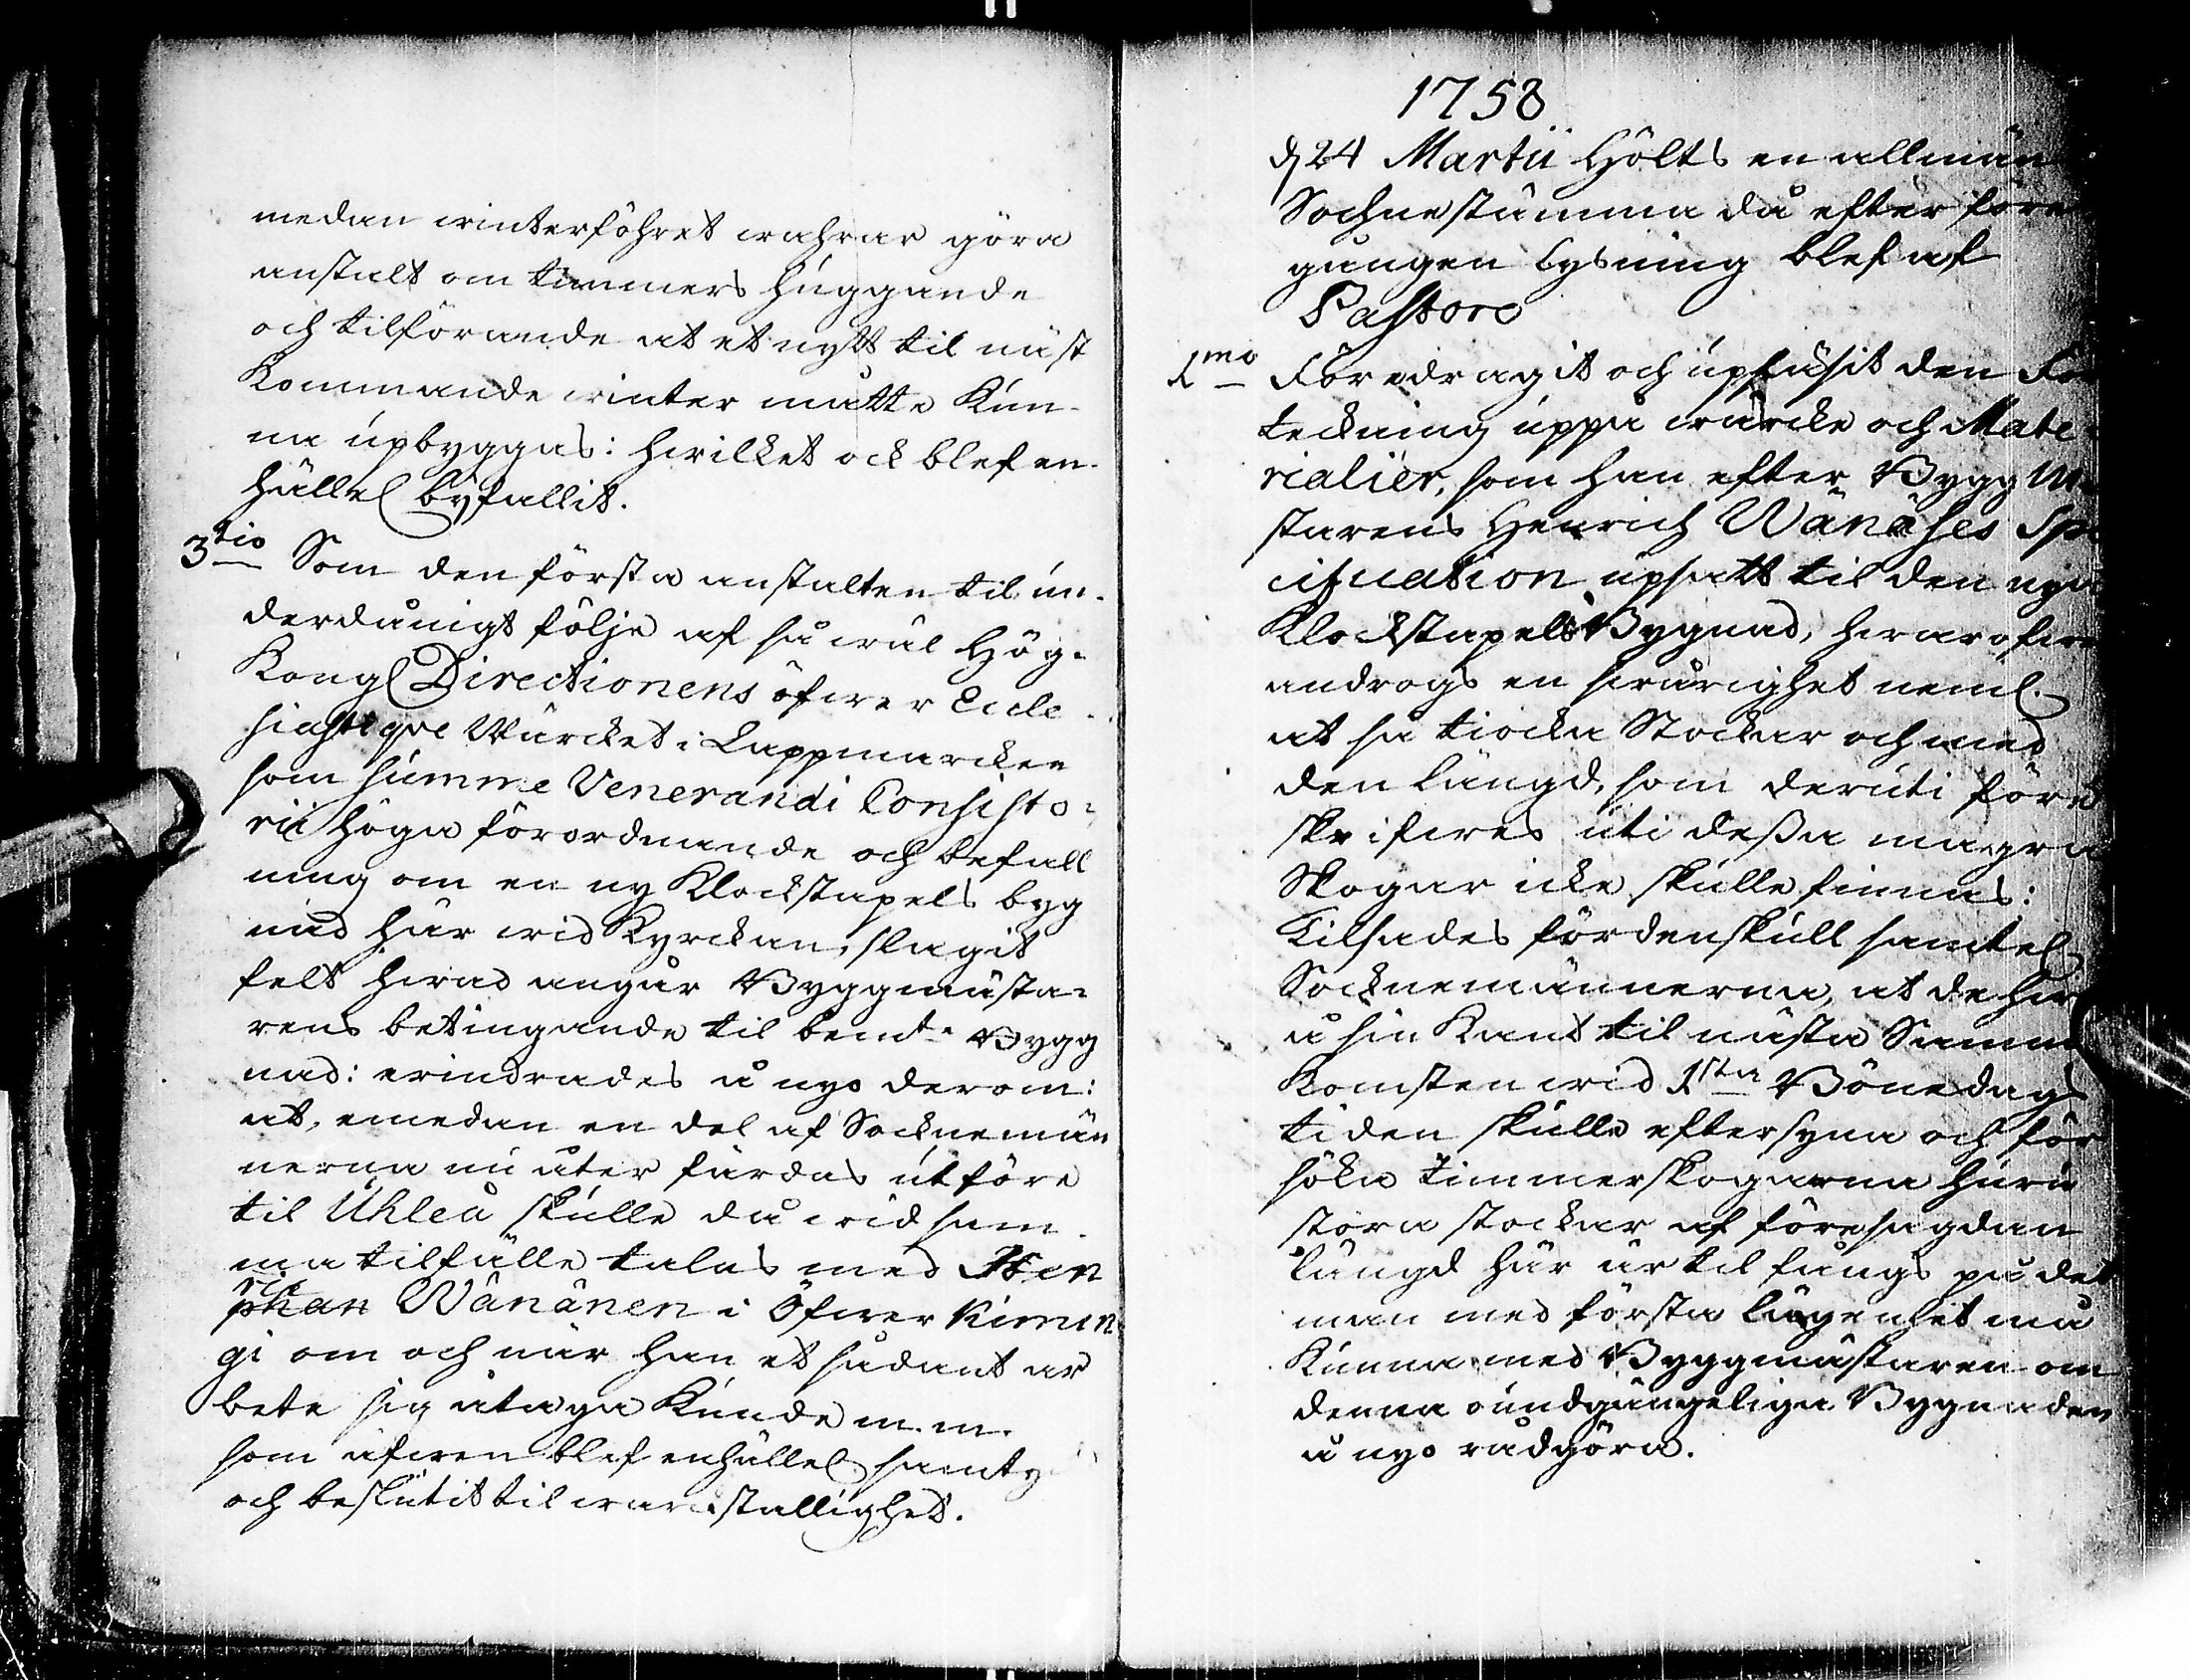 medan winterföhret wahrar göra
anstalt om timmers huggande
och tilförande at et nytt til näst
kommande winter måtte kun-
na upbyggas: hwilket ock blef en-
hälle⌊ byfallit.
3tio Som den första anstalten til un-
derdånigt följe af så wäl Hög-
Kongl Directionens öfwer Eccle-
siastique Wärcket i Lappmarcken
som summe Venerandi Consisto-
rii höga förordnande och befall
ning om en ny Klockstapels byg
nad här wid Kyrckan, slagit
felt hwad angår Byggmästa-
rens betingande til bemte Bygg
nad: erindrades å nyo derom:
at, emedan en del af Socknemän
nerna nu åter färdas utföre
til Uhleå skulle då wid sam-
ma tilfälle talas med Hen
rich Wänänen i Öfwer Kimin
gi om och när han et sådant ar
bete sig åtaga kunde m.m.
som äfwen blef enhälle⌊ samty
och beslutit til warckstallighet.
1758
d 24 Martii Hölts en allmän
Sochnestämma då efter före
gången Lysning blef af
Pastore
1mo Föredragit och upläsit den För
teckning uppå wärcke och Mate-
rialier, som han efter Bygg Mä
starens Henrich Wänäses Spe
cification upsatt til den nya
Klockstapels Bygnad, hwarofwer
androgs en swårighet neml.
at så tiocka Stockar och med
den längd, som deruti före
skrifwes uti dessa magra
Skogar icke skulle finnas:
Tilsades fördenskull samtel
Socknemännerna, at de hwar
å sin Kant til nästa Samman
komsten wid 1sta Bönedags
tiden skulle eftersyna och för
söka timmerskogarna huru
stora stockar af föresagdan
längd här är til fångs på det
man med första lägenhet må
kunna med Byggmästaren om
denna oundgängeliga Bygnaden
å nyo rådgöra.